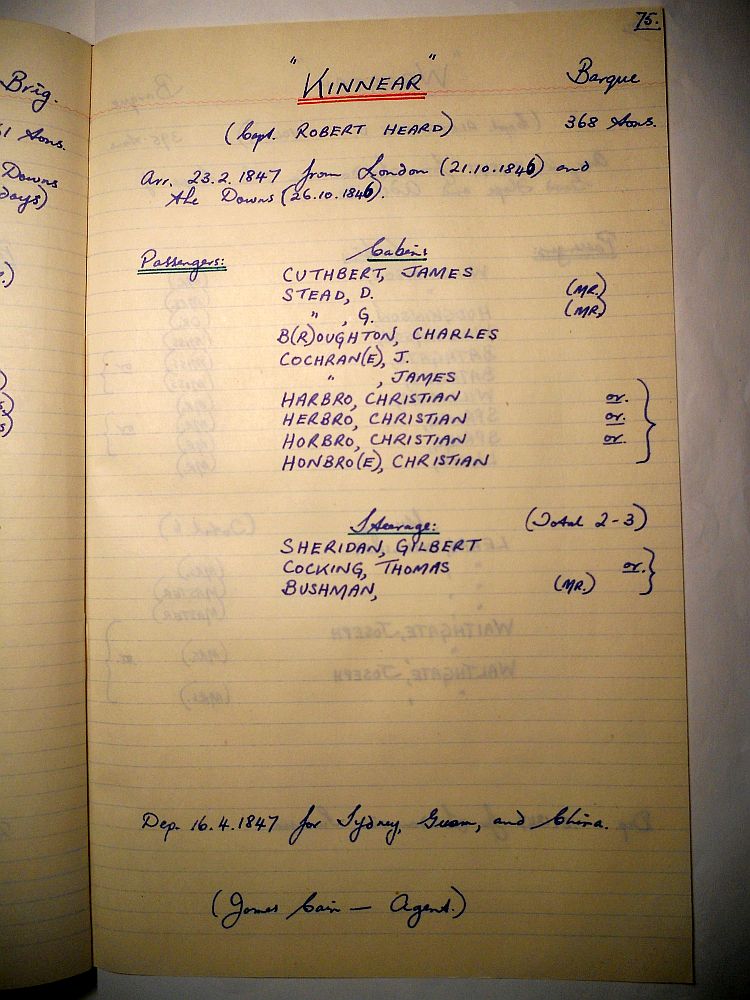 75.
Brig.
"KINNEAR"
Barque
(Capt. ROBERT HEARD)
368 Tons.
Tons.
Arr. 23.2.1847 from London (21.10.1846) and
the Downs (26.10.1846).
Downs
days)
Passengers:
Cabin:
CUTHBERT, JAMES
STEAD, D. (MR.)
" , G. (MR)
B(R)OUGHTON, CHARLES
COCHRAN(E), J.
" , JAMES
HARBRO, CHRISTIAN or.
HERBRO, CHRISTIAN or.
HORBRO, CHRISTIAN or.
HONBRO(E), CHRISTIAN
Steerage: (Total 2-3)
SHERIDAN, GILBERT
COCKING, THOMAS or.
BUSHMAN, (MR.)
Dep. 16.4.1847 for Sydney, Guam, and China.
(James Cain — Agent.)